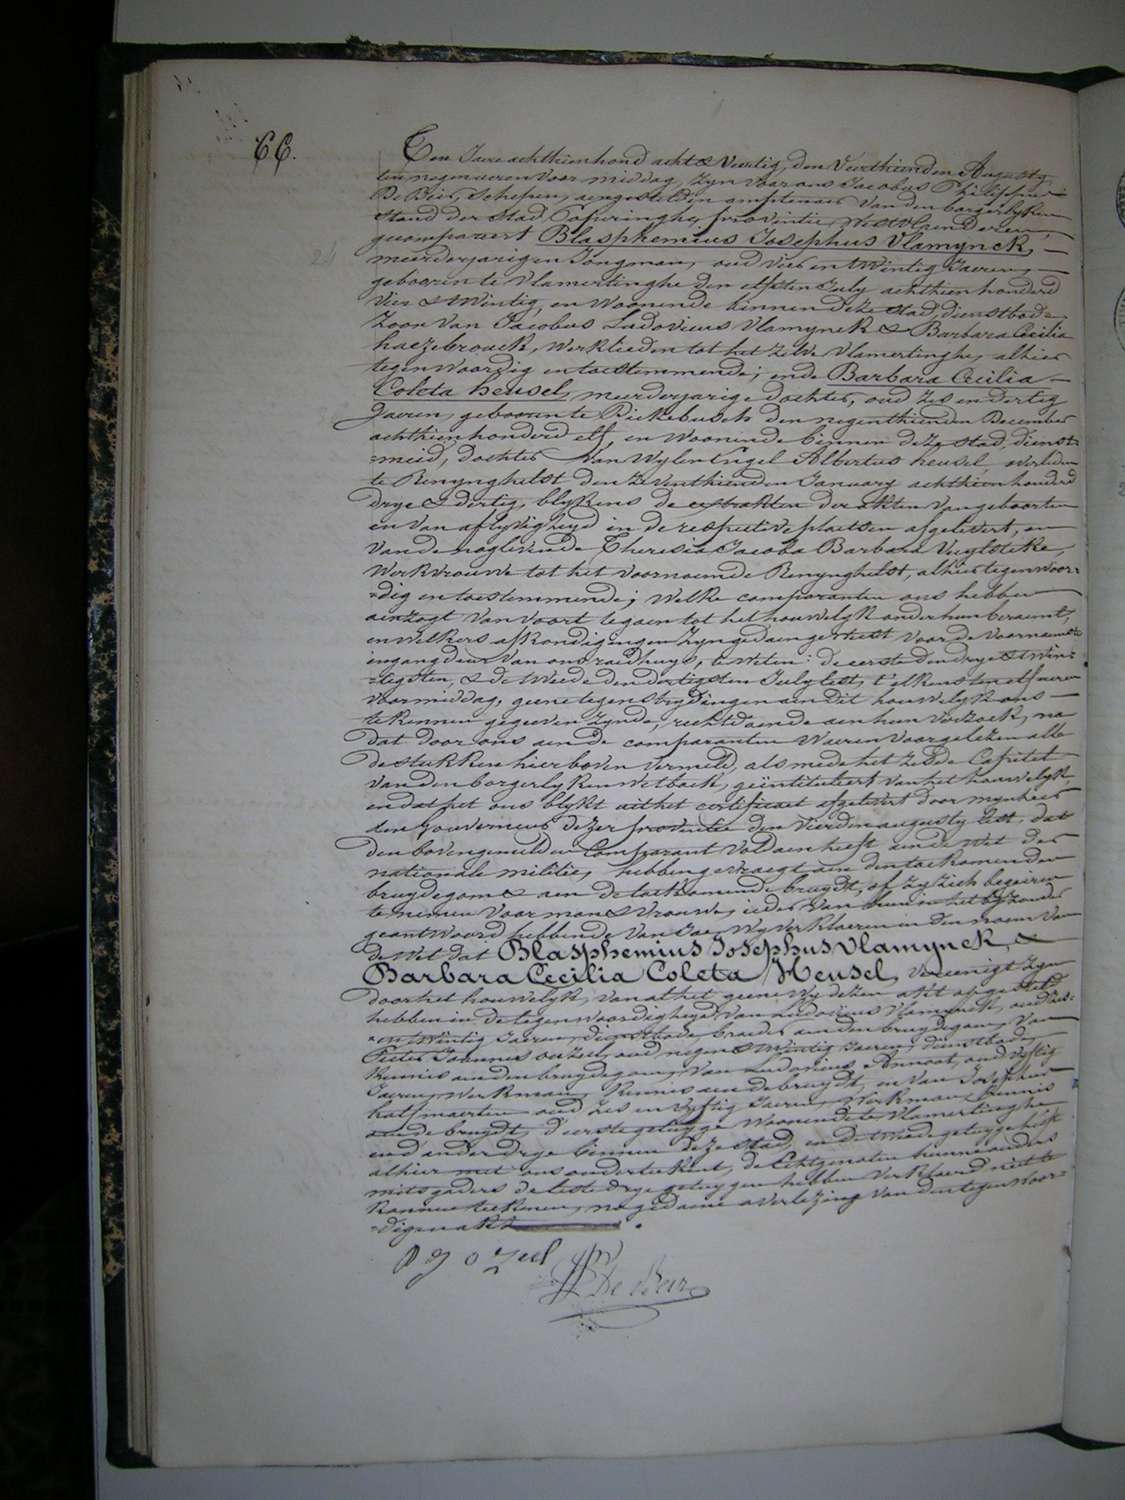 66.
Ten Jaere achthienhond acht & Veertig, den Veerthienden Augusty
ten negen ueren voor middag, zyn voor ons Jacobus Philippus
De Beir, Schepen, aengestelden amptenaer van den borgerlyken
stand der stad Poperinghe, provintie West Vlaenderen,
gecompareert Blasphemius Josephus Vlamynck,
meerderjarigen Jongman, oud vier en twintig Jaeren,
geboren te Vlamertinghe den elfsten July achthien honderd
Vier & twintig, en woonende binnen deze stad, dienstbode
Zoon van Jacobus Ludovicus Vlamynck & Barbara Cecilia
haezebrouck, werklieden tot het zelve Vlamertinghe, alhier
tegenwoordig en toestemmende; ende Barbara Cecilia
Coleta heusel, meerderjarige dochter, oud zes en dertig
Jaeren, geboren te Dickebusch den negenthienden December
achthien honderd elf, en woonende binnen deze stad, dienst=
=meid, dochter van wylen Engel Albertus heusel, overleden
te Renynghelst den zeventhienden January achthien honderd
drye & dertig, blykens de extrakten der akten van geboorten
en van aflyvigheyd in de respective plaetsen afgelevert, en
van de naglevende Theresia Jacoba Barbara Vuylsteke,
werkvrouwe tot het voornoemde Renynghelst, alhier tegenwoor=
=dig en toestemmende; welke comparanten ons hebben
aenzogt van voort te gaen tot het houwelyk onder hun beraemt,
en welkers afkondigingen zyn gedaen geweest voor de voornaemste
ingangdeur van ons raedhuys, te weten: de eerste den drye & twin=
=tigsten, & de tweede den dertigsten July lest, t'elkens ten elf ueren
voormiddag, geene tegenstrydingen aen dit houwelyk ons
te kennen gegeven zynde, recht doende aen hun verzoek, na
dat door ons aen de comparanten waeren voorgelezen alle
de stukken hier boven vermeld, als mede het zesde Capittel
van den borgerlyken wetboek, geïntituleert van het houwelyk
en dat het ons blykt uit het certificaet afgelevert door mynheer
den gouverneur dezer provintie den vierden augusty lest, dat
den bovengemelden Comparant voldaen heeft aen de wet der
nationale militie, hebben gevraegt aen den toekomenden
bruydegom & aen de toekomende bruydt, of zy zich begeiren
te nemen voor man & vrouwe, ieder van hun in het byzonder
geantwoord hebbende van Jae, wy verklaeren in den naem van
de Wet dat Blasphemius Josephus Vlamynck, &
Barbara Cecilia Coleta Heusel, vereenigt zyn
door het houwelyk, van al het geene wy dezen akt opgestelt
hebben in de tegenwoordigheyd van Ludovicus Vlamynck, oud
en twintig Jaeren, dienstbode, broeder aen den bruydegom, van
Pieter Joannes ozeel, oud negen & twintig Jaeren, dienstbode,
kennis aen den bruydegom, van Ludovicus Annoot, oud vyftig
Jaeren, werkman, kennis aen de bruydt, en van Josephus
halsmaerten oud zes en vyftig Jaeren, werkman, kennis
aen de bruydt, d'eerste getuyge woonende te Vlamertinghe
en d'ander drye binnen deze stad, en de tweede getuyge heeft
alhier met ons onderteekent, de Echtgenoten hunne ouders
mitsgaders de leste drye getuygen hebben verklaerd niet te
konnen teekenen, na gedaene overlezing van den tegenwoor=
=digen akt.
P J ozeel
De Beir